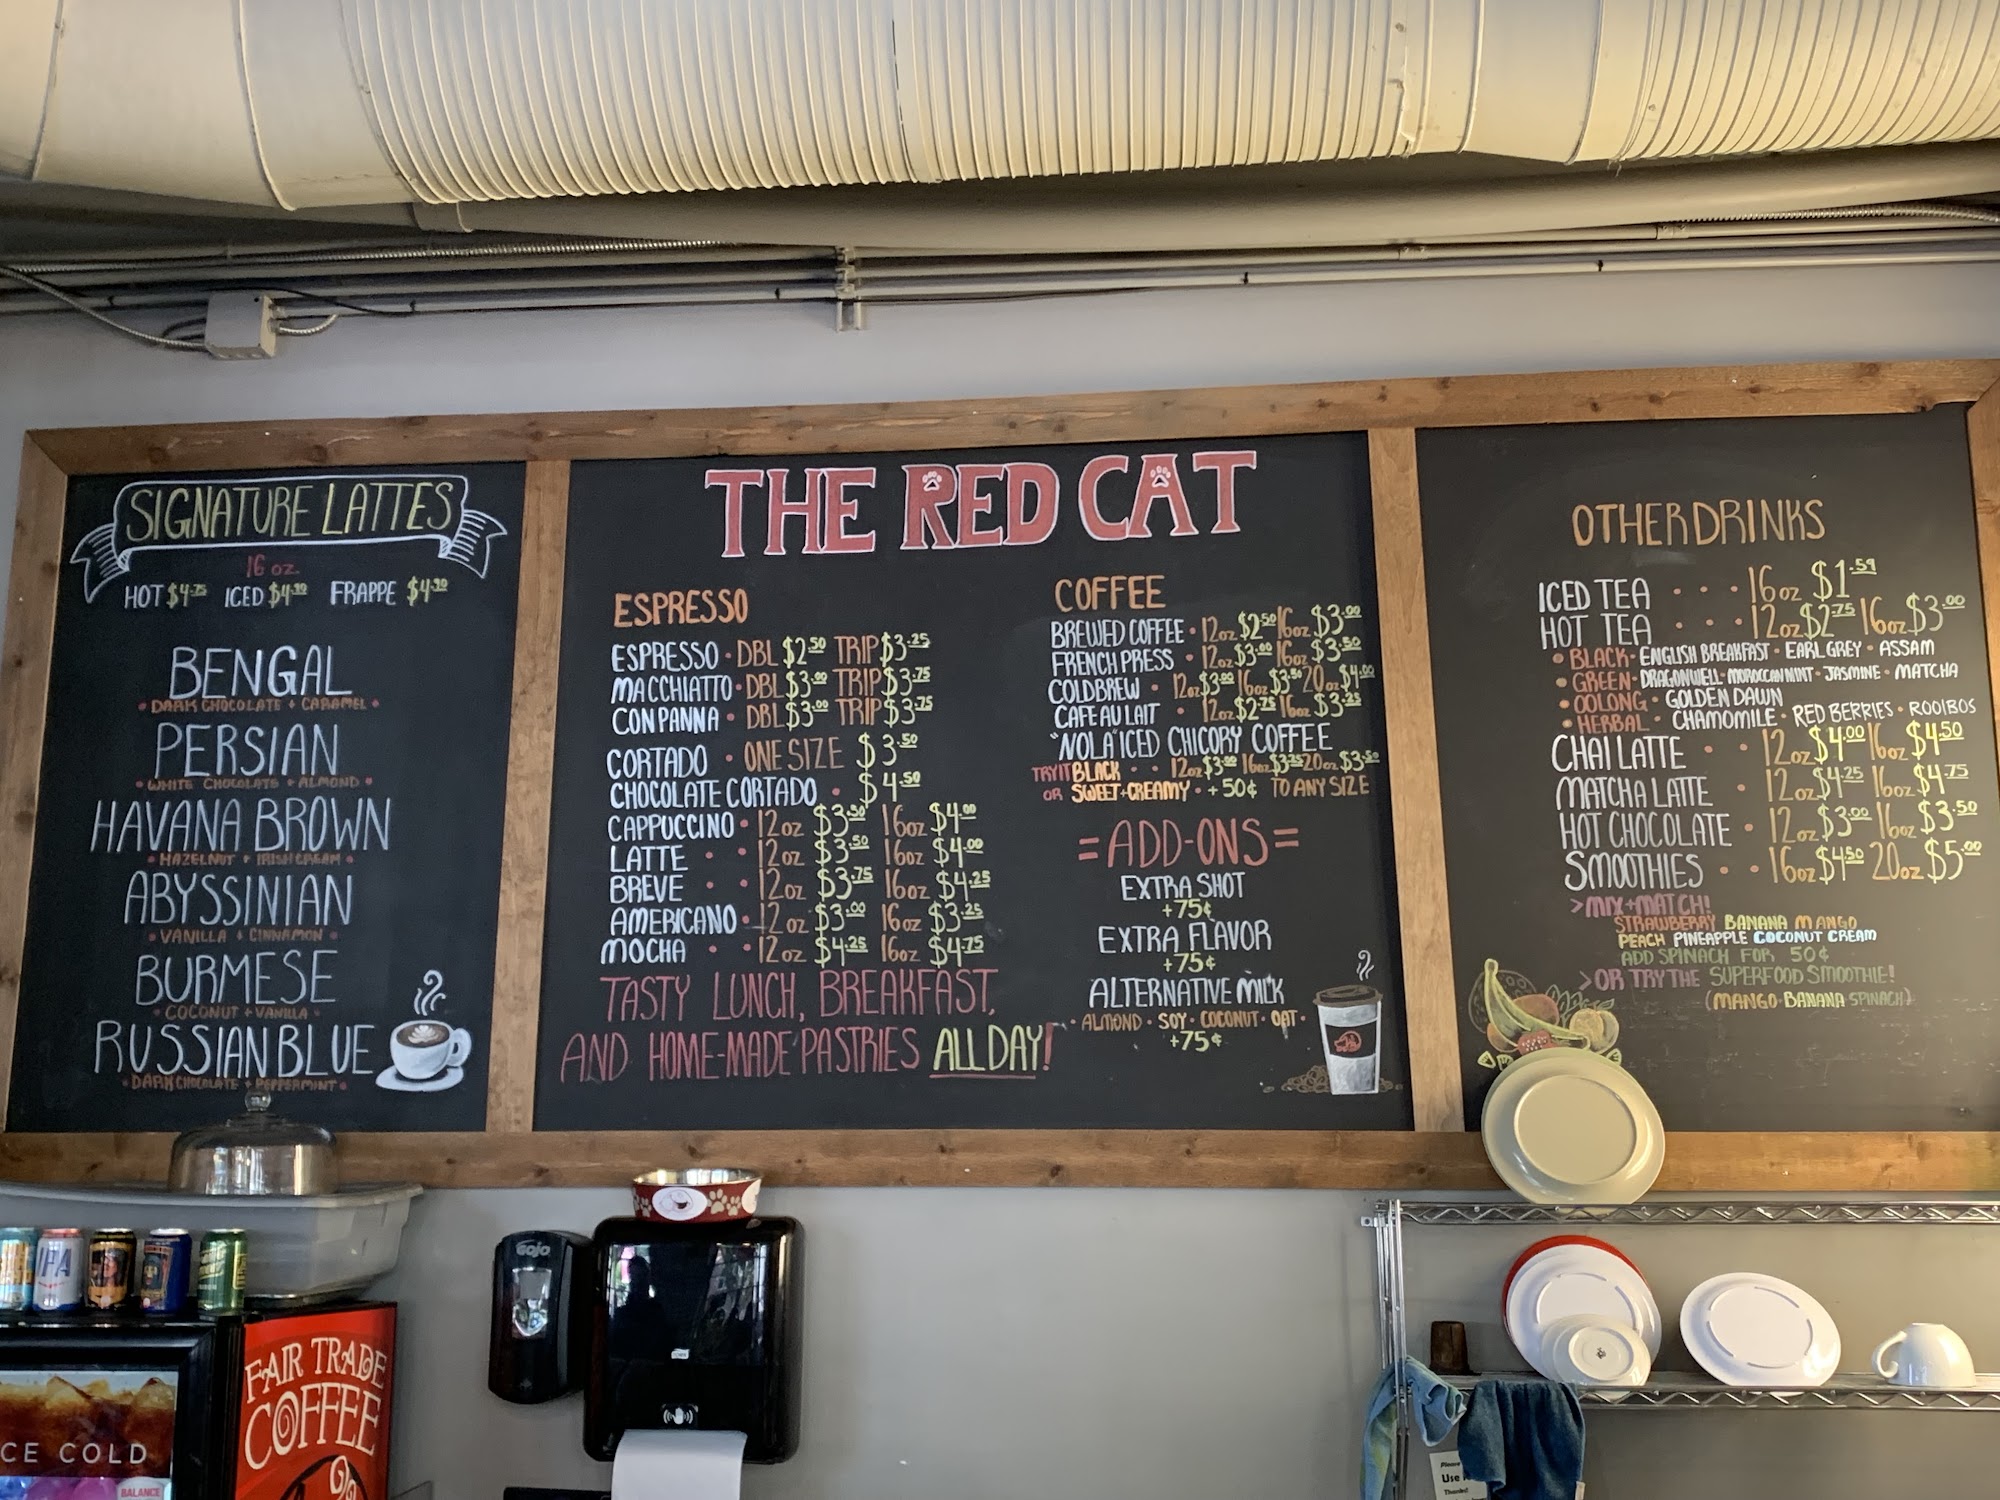 SIGNATURE LATTES
16 oz.
HOT $4.75 ICED $4.90 FRAPPE $4.90
BENGAL
• DARK CHOCOLATE + CARAMEL •
PERSIAN
• WHITE CHOCOLATE + ALMOND •
HAVANA BROWN
• HAZELNUT + IRISH CREAM •
ABYSSINIAN
• VANILLA + CINNAMON •
BURMESE
• COCONUT + VANILLA •
RUSSIAN BLUE
• DARK CHOCOLATE + PEPPERMINT •
THE RED CAT
ESPRESSO
ESPRESSO • DBL $2.50 TRIP $3.25
MACCHIATTO • DBL $3.00 TRIP $3.75
CON PANNA • DBL $3.00 TRIP $3.75
CORTADO • ONE SIZE $3.50
CHOCOLATE CORTADO • $4.50
CAPPUCCINO • 12oz $3.50 16oz $4.00
LATTE • • 12oz $3.50 16oz $4.00
BREVE • • 12oz $3.75 16oz $4.25
AMERICANO • 12oz $3.00 16oz $3.25
MOCHA • • 12oz $4.25 16oz $4.75
TASTY LUNCH, BREAKFAST,
AND HOME-MADE PASTRIES ALL DAY!
COFFEE
BREWED COFFEE • 12oz $2.50 16oz $3.00
FRENCH PRESS • 12oz $3.00 16oz $3.50
COLD BREW • 12oz $3.00 16oz $3.50 20oz $4.00
CAFE AU LAIT • 12oz $2.75 16oz $3.25
"NOLA" ICED CHICORY COFFEE
TRY IT BLACK • • 12oz $3.00 16oz $3.25 20oz $3.50
OR SWEET + CREAMY • + 50¢ TO ANY SIZE
= ADD-ONS =
EXTRA SHOT
+75¢
EXTRA FLAVOR
+75¢
ALTERNATIVE MILK
• ALMOND • SOY • COCONUT • OAT •
+75¢
OTHER DRINKS
ICED TEA • • • 16oz $1.59
HOT TEA • • • 12oz $2.75 16oz $3.00
• BLACK • ENGLISH BREAKFAST • EARL GREY • ASSAM
• GREEN • DRAGONWELL • MOROCCAN MINT • JASMINE • MATCHA
• OOLONG • GOLDEN DAWN
• HERBAL • CHAMOMILE • RED BERRIES • ROOIBOS
CHAI LATTE • • 12oz $4.00 16oz $4.50
MATCHA LATTE • 12oz $4.25 16oz $4.75
HOT CHOCOLATE • 12oz $3.00 16oz $3.50
SMOOTHIES • • 16oz $4.50 20oz $5.00
>MIX+MATCH!
STRAWBERRY BANANA MANGO
PEACH PINEAPPLE COCONUT CREAM
ADD SPINACH FOR 50¢
>OR TRY THE SUPERFOOD SMOOTHIE!
(MANGO • BANANA SPINACH)
GOJO
IPA
FAIR TRADE
COFFEE
CE COLD
BALANCE
Please
Use
Thanks!